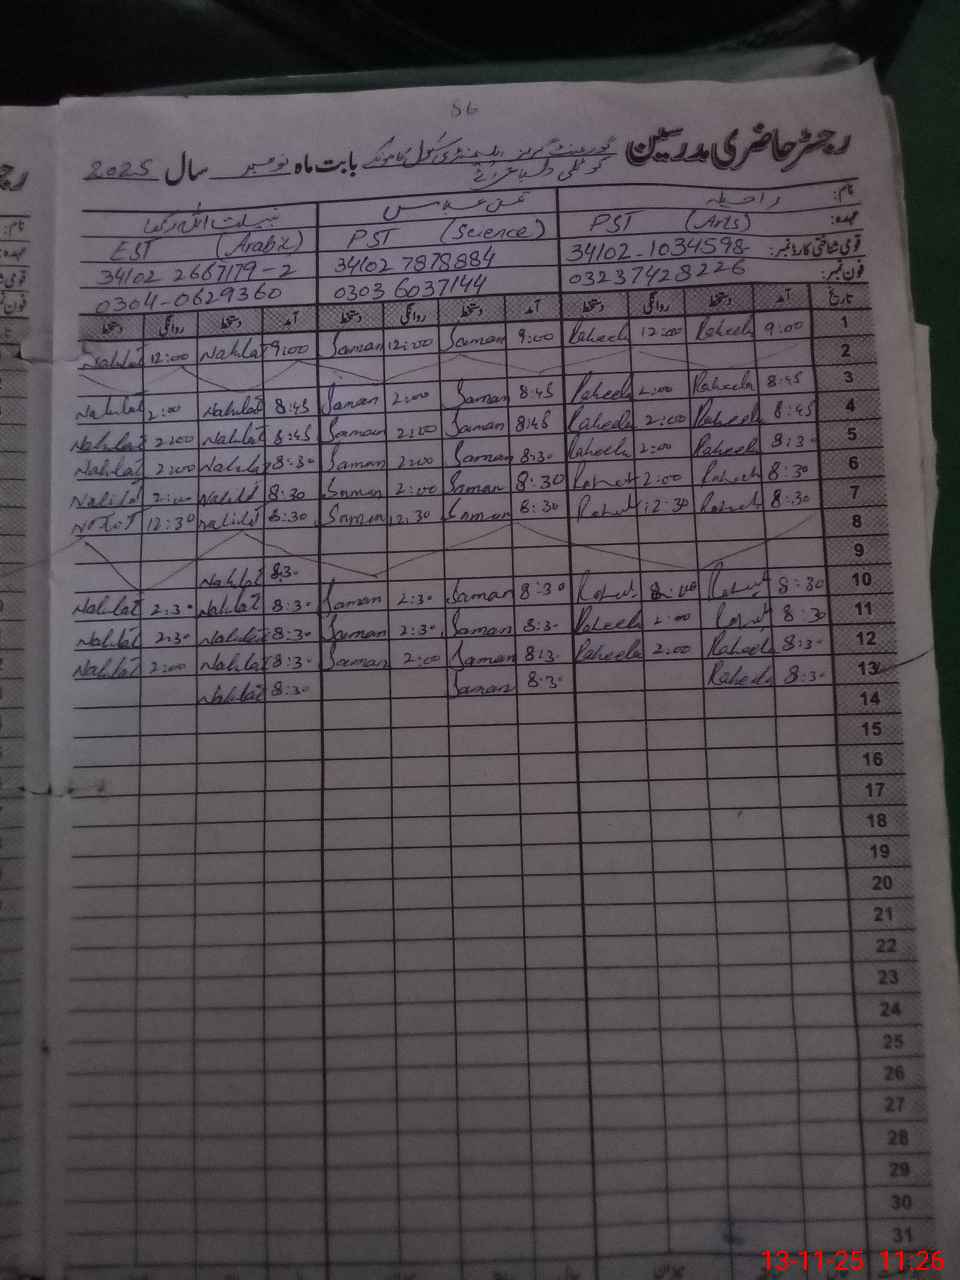 56
رجسٹر حاضری مدرسین گورنمنٹ گرلز ایلیمنٹری سکول بابت ماہ نومبر سال 2025
نام: راحیلہ
عہدہ: PST (Arts) PST (Science) EST (Arabic)
قومی شناختی کارڈ نمبر: 34102-1034598- 34102 7878884 34102 2667179-2
فون نمبر: 03237428226 0303 6037144 0304-0629360
تاریخ آمد دستخط روانگی دستخط آمد دستخط روانگی دستخط آمد دستخط روانگی دستخط
1 9:00 Raheela 12:00 Raheela 9:00 Saman 12:00 Saman 9:00 Nahlat 12:00 Nahlat
2
3 8:45 Raheela 2:00 Raheela 8:45 Saman 2:00 Saman 8:45 Nahlat 2:00 Nahlat
4 8:45 Raheela 2:00 Raheela 8:45 Saman 2:00 Saman 8:45 Nahlat 2:00 Nahlat
5 8:30 Raheela 2:00 Raheela 8:30 Saman 2:00 Saman 8:30 Nahlat 2:00 Nahlat
6 8:30 2:00 8:30 Saman 2:00 Saman 8:30 Nahlat 2:00 Nahlat
7 8:30 12:30 8:30 Saman 12:30 Saman 8:30 12:30
8
9
8:3- Nahlat
10 8:30 8:30 Saman 2:30 Saman 8:30 Nahlat 2:30 Nahlat
11 8:30 2:00 Raheela 8:30 Saman 2:30 Saman 8:30 Nahlat 2:30 Nahlat
12 8:30 Raheela 2:00 Raheela 8:30 Saman 2:00 Saman 8:30 Nahlat 2:00 Nahlat
13 8:30 Raheela 8:30 Saman 8:30 Nahlat
14
15
16
17
18
19
20
21
22
23
24
25
26
27
28
29
30
31
13-11-25 11:26